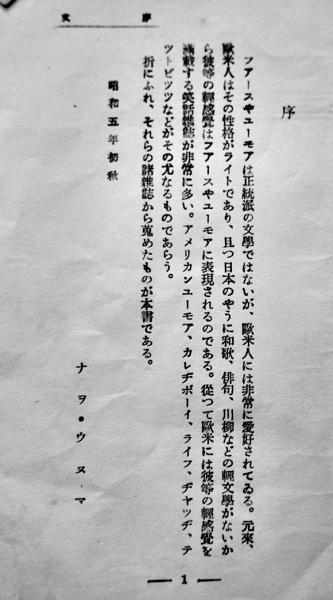 序文
序
フアースやユーモアは正統派の文學ではないが、歐米人には非常に愛好されてゐる。元來、
歐米人はその性格がライトであり、且つ日本のやうに和歌、俳句、川柳などの輕文學がないか
ら彼等の輕感覺はフアースやユーモアに表現されるのである。從つて歐米には彼等の輕感覺を
滿載する笑話雜誌が非常に多い。アメリカンユーモア、カレヂボーイ、ライフ、ヂヤツヂ、テ
ツトビツツなどがその尤なるものであらう。
折にふれ、それらの諸雜誌から蒐めたものが本書である。
昭和五年初秋
ナヲ・ウヌマ
— 1 —